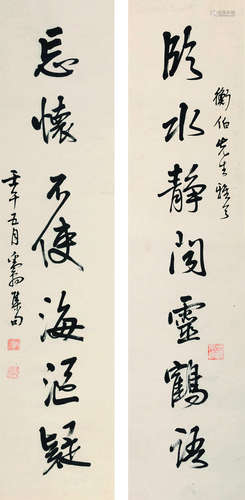 臨水靜聞靈鶴語
衡伯先生雅
忘懷不使海漚疑
壬午五月 集句